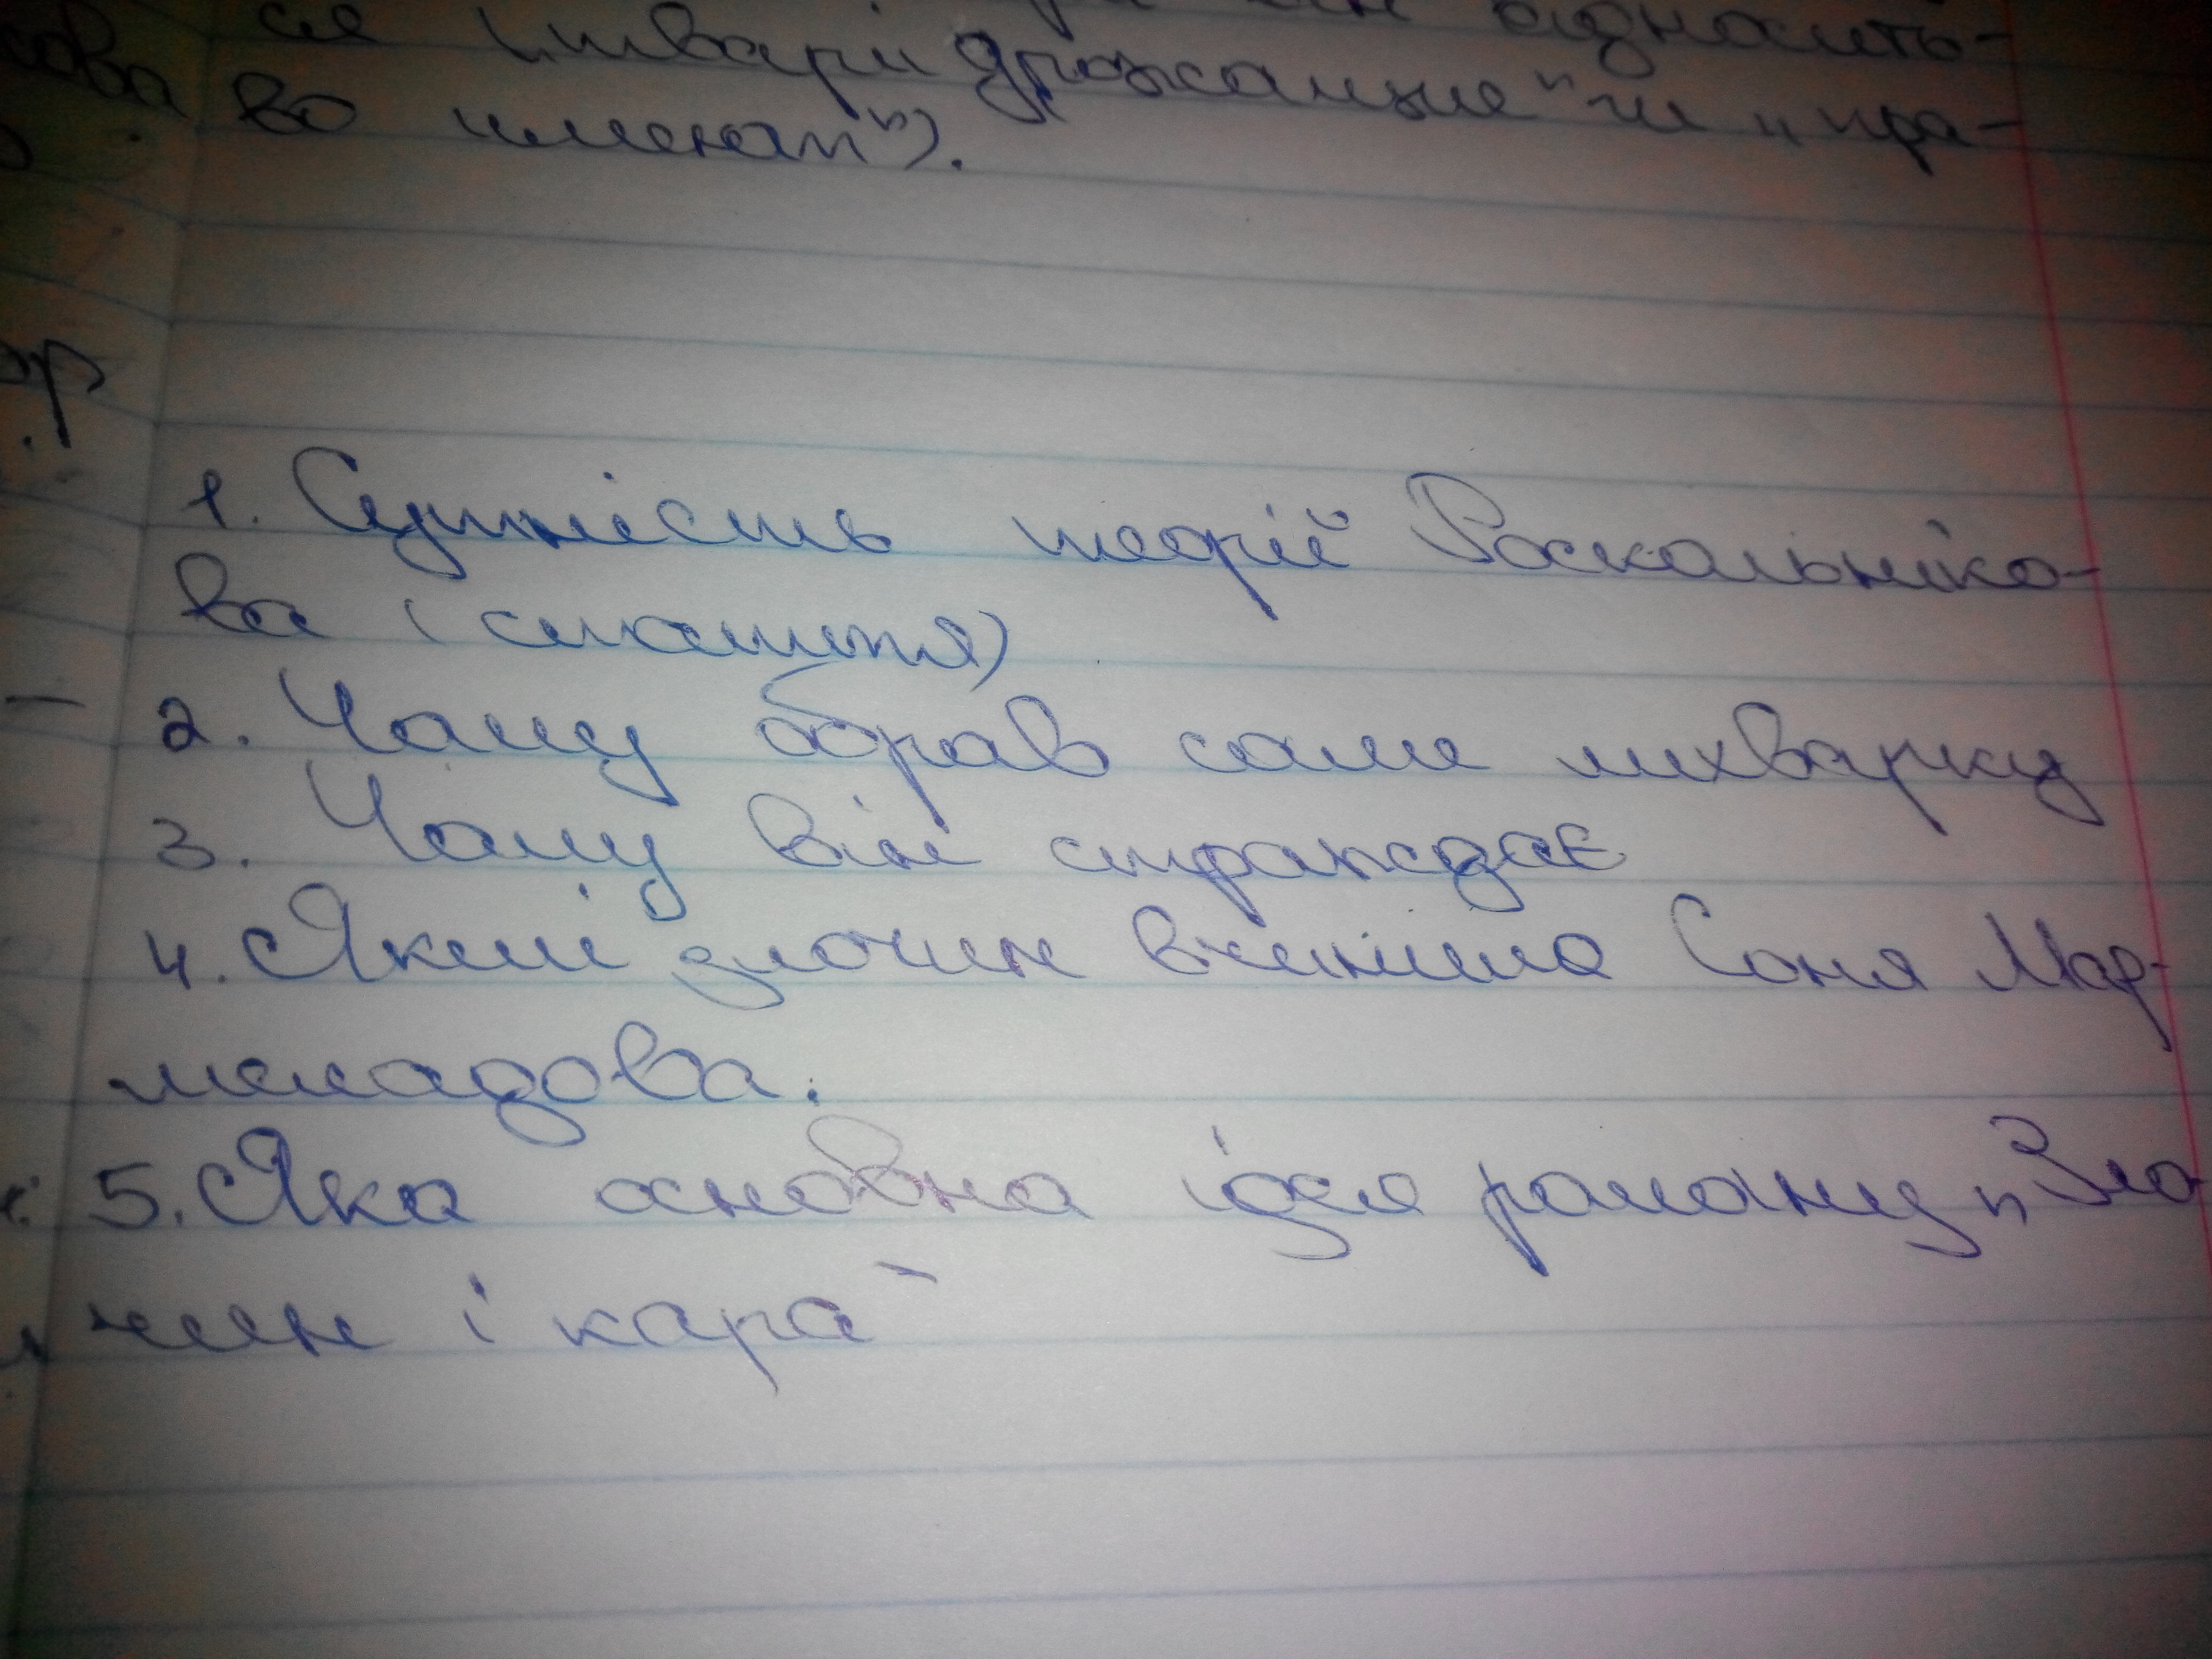 ся („твари дрожащие" чи „пра-
во имеют").
1. Сутність теорії Роскольніко-
ва (стаття)
2. Чому обрав саме лихварку
3. Чому він страждає
4. Який злочин вчинила Соня Мар-
меладова.
5. Яка основна ідея роману „Зло
чин і кара"